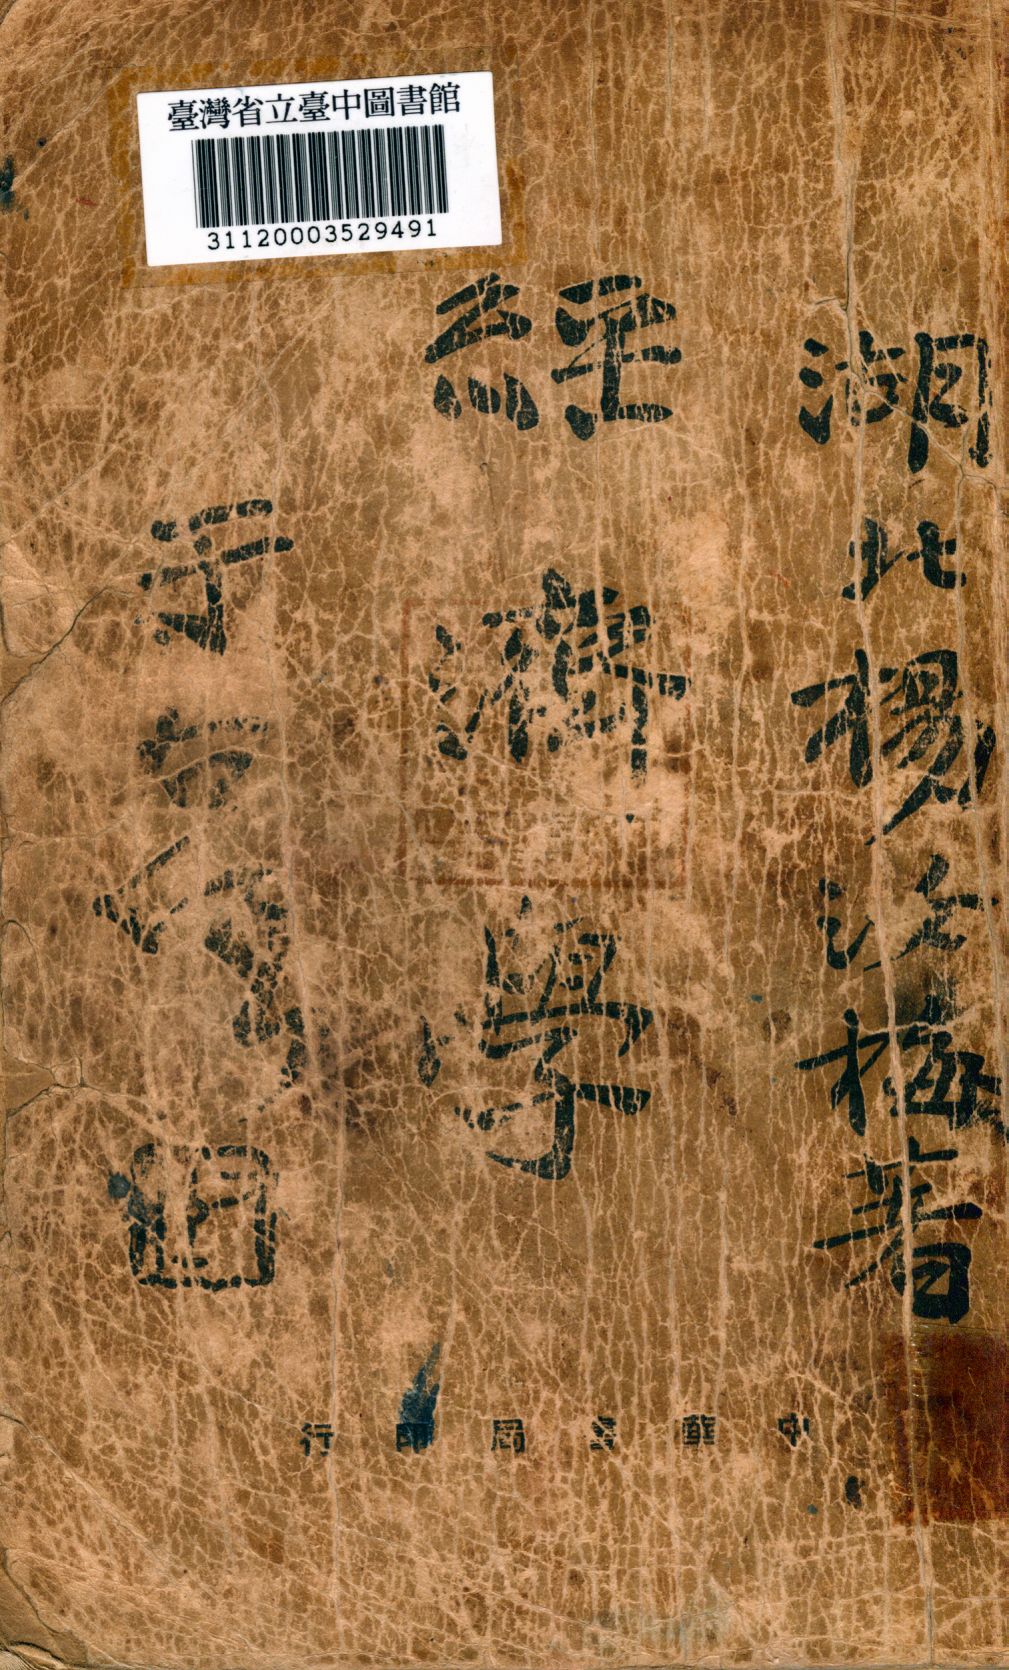 臺灣省立臺中圖書館
31120003529491
湖北楊汝梅著
經濟學
中華書局印行